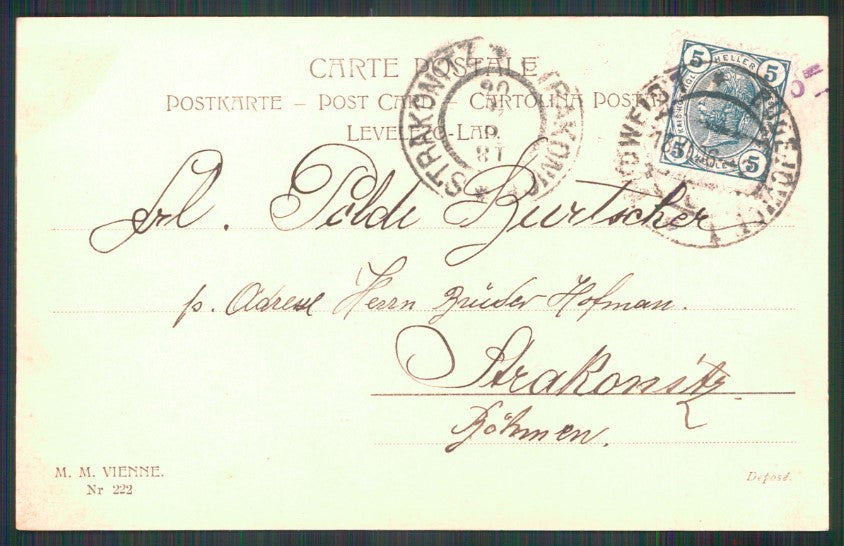 CARTE POSTALE
POSTKARTE – POST CARD – CARTOLINA POSTALE
LEVELEZŐ-LAP.
STRAKONITZ
5 HELLER 5
5 5
Frl. Poldi Burtscher
p. Adresse Herrn Brüder Hofman.
Strakonitz
Böhmen.
M. M. VIENNE.
Nr 222
Deposé.